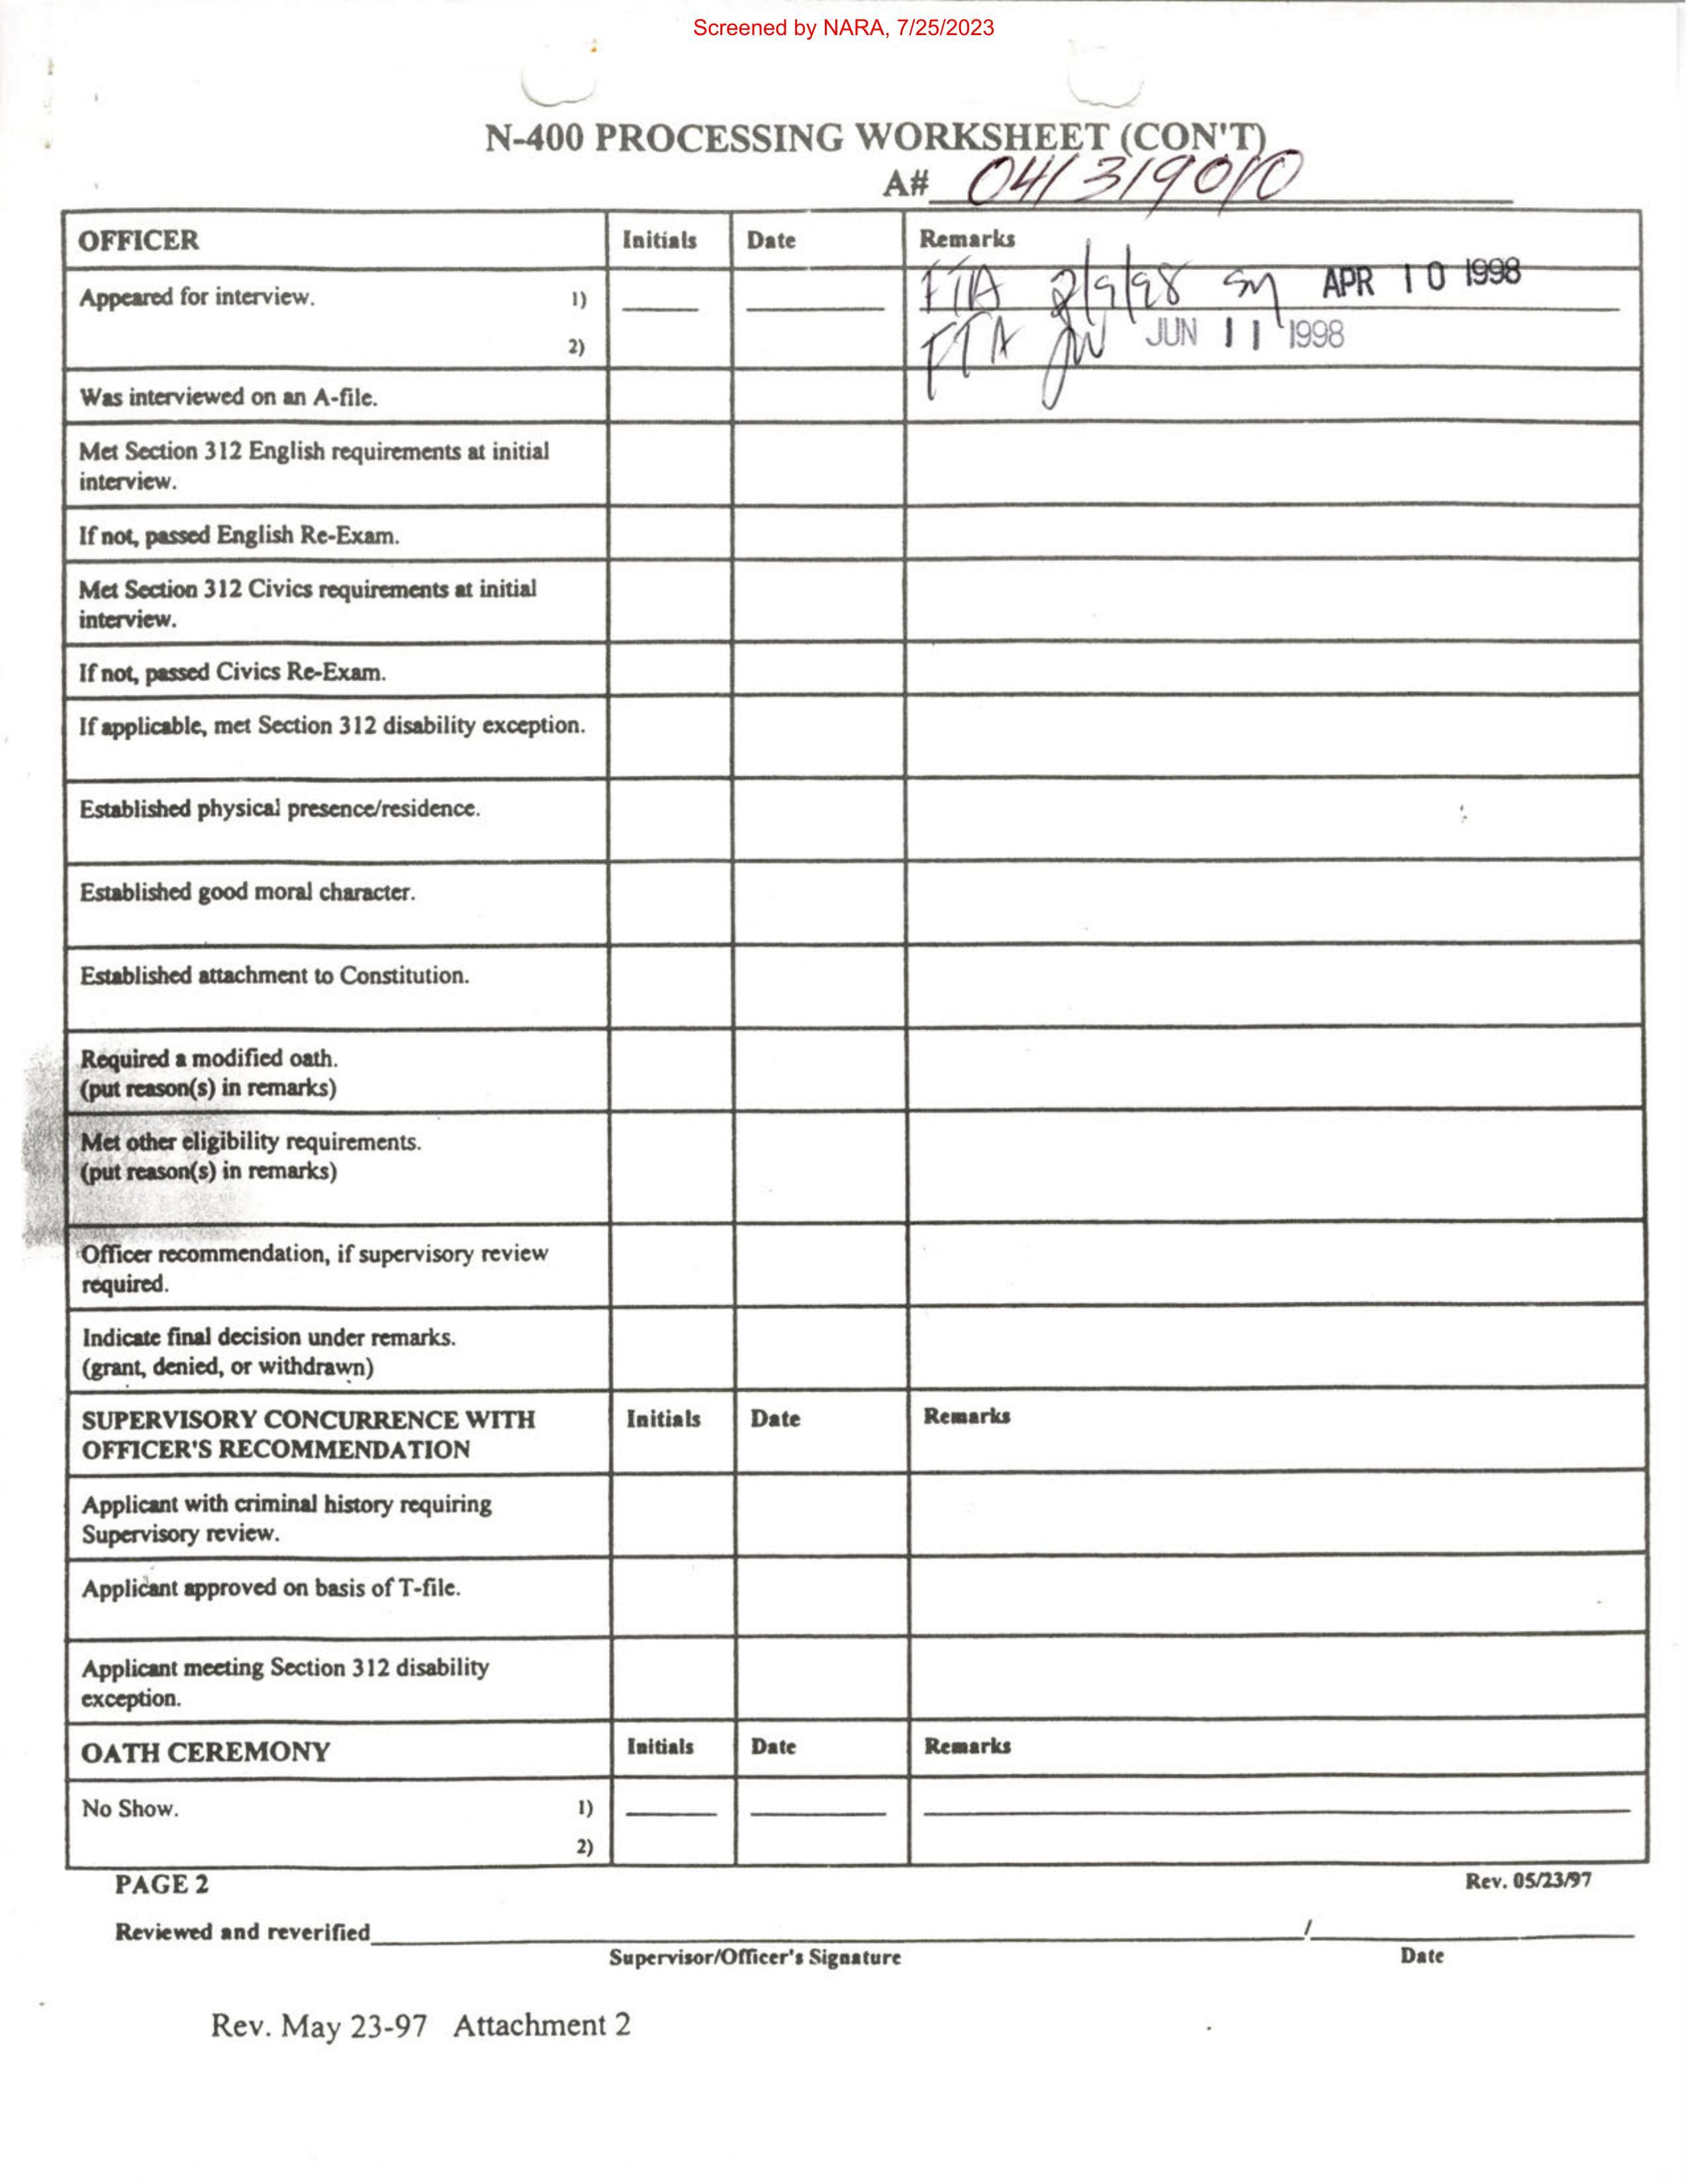 Screened by NARA, 7/25/2023
N-400 PROCESSING WORKSHEET (CON'T)
A# 041319010
OFFICER Initials Date Remarks
Appeared for interview. 1) FTA 2/9/98 SM APR 10 1998
2) FTA JW JUN 11 1998
Was interviewed on an A-file.
Met Section 312 English requirements at initial
interview.
If not, passed English Re-Exam.
Met Section 312 Civics requirements at initial
interview.
If not, passed Civics Re-Exam.
If applicable, met Section 312 disability exception.
Established physical presence/residence.
Established good moral character.
Established attachment to Constitution.
Required a modified oath.
(put reason(s) in remarks)
Met other eligibility requirements.
(put reason(s) in remarks)
Officer recommendation, if supervisory review
required.
Indicate final decision under remarks.
(grant, denied, or withdrawn)
SUPERVISORY CONCURRENCE WITH Initials Date Remarks
OFFICER'S RECOMMENDATION
Applicant with criminal history requiring
Supervisory review.
Applicant approved on basis of T-file.
Applicant meeting Section 312 disability
exception.
OATH CEREMONY Initials Date Remarks
No Show. 1)
2)
PAGE 2 Rev. 05/23/97
Reviewed and reverified /
Supervisor/Officer's Signature Date
Rev. May 23-97 Attachment 2